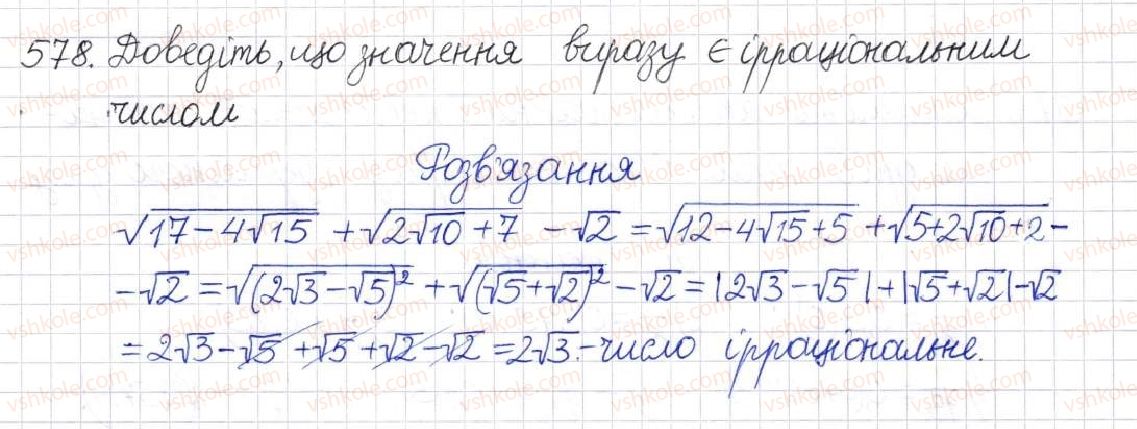 578. Доведіть, що значення виразу є ірраціональним
числом
Розв'язання
√(17-4√15) + √(2√10+7) - √2 = √(12-4√15+5) + √(5+2√10+2) -
-√2 = √((2√3-√5)²) + √((√5+√2)²) - √2 = |2√3-√5| + |√5+√2| - √2
= 2√3-√5+√5+√2-√2 = 2√3. - число ірраціональне.
vshkole.com